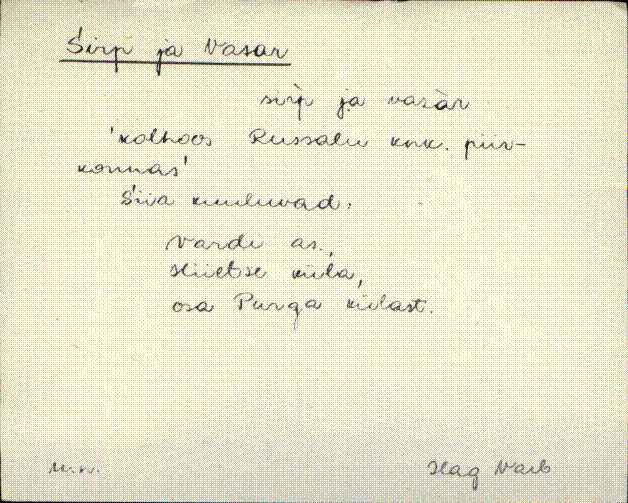 Sirp ja Vasar
sìrp ja vasàr
'kolhoos Russalu knk. piir-
konnas'
Siia kuuluvad:
Vardi as.,
Hiietse küla,
osa Purga külast.
m.n.
Hag Varb